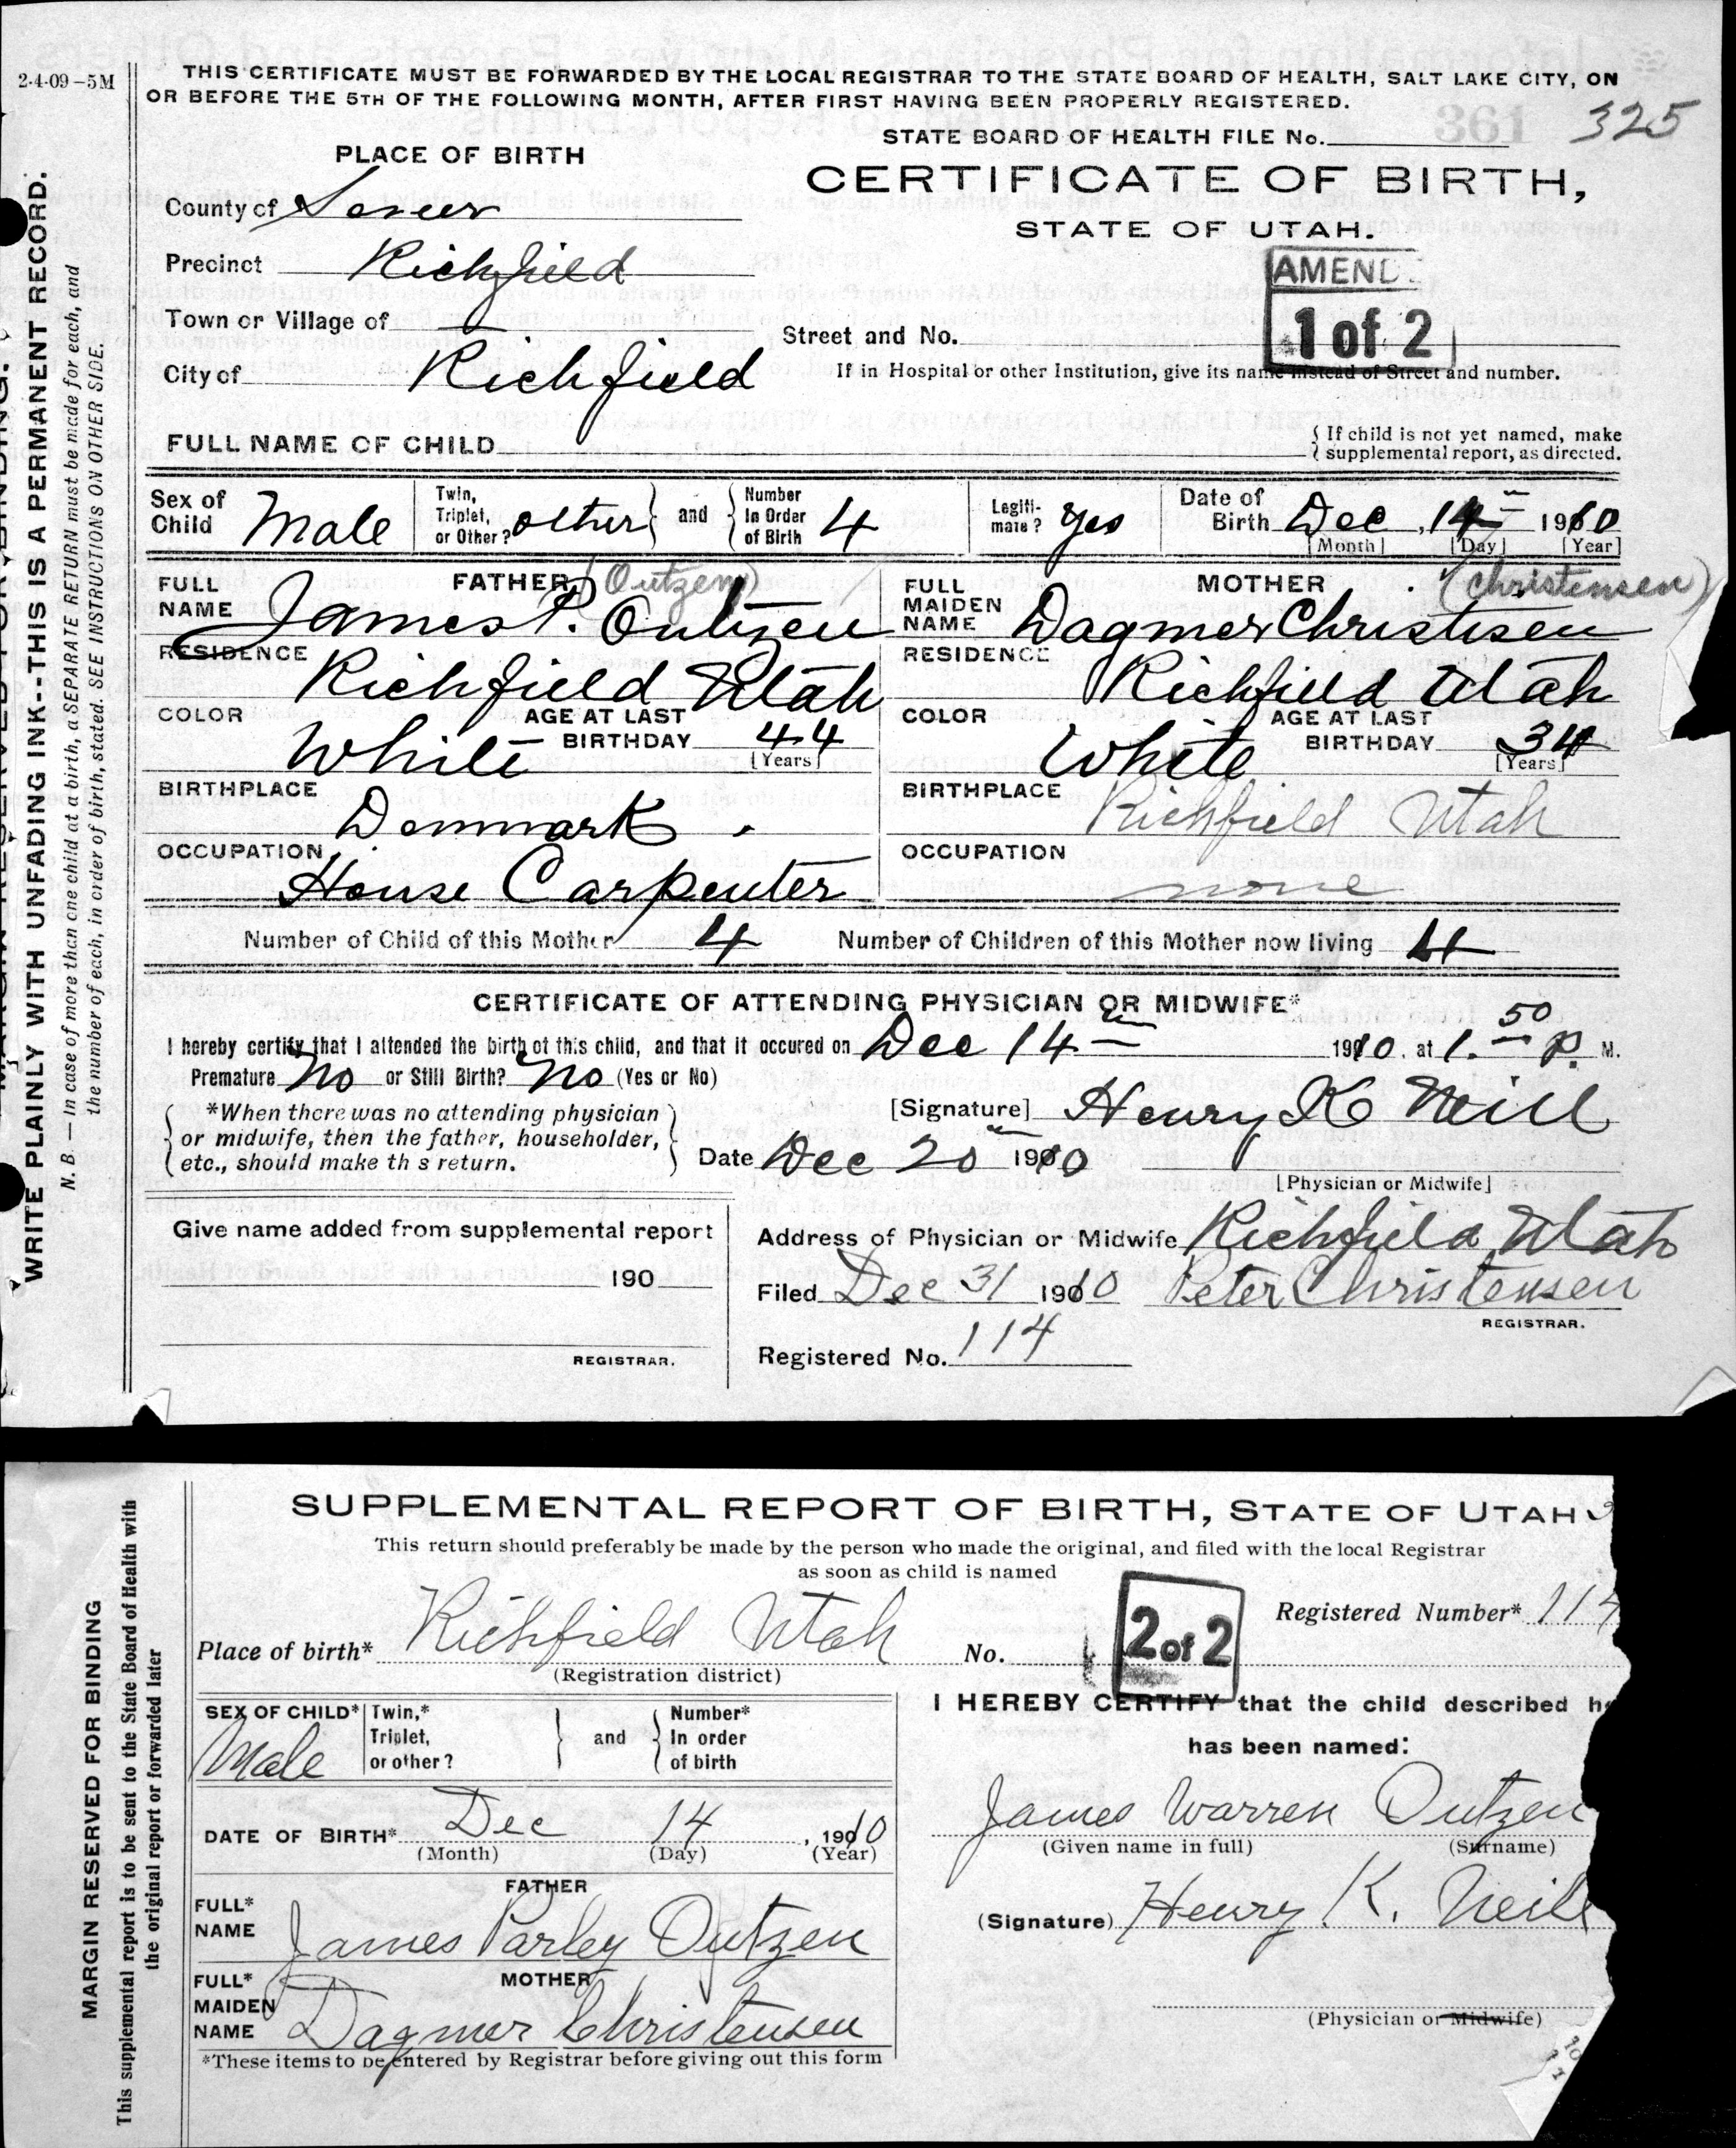 2-4-09-5M
THIS CERTIFICATE MUST BE FORWARDED BY THE LOCAL REGISTRAR TO THE STATE BOARD OF HEALTH, SALT LAKE CITY, ON
OR BEFORE THE 5TH OF THE FOLLOWING MONTH, AFTER FIRST HAVING BEEN PROPERLY REGISTERED.
361 325
STATE BOARD OF HEALTH FILE No.
PLACE OF BIRTH
CERTIFICATE OF BIRTH,
STATE OF UTAH.
County of Sevier
Precinct Richfield
AMEND
1 of 2
Town or Village of
Street and No.
City of Richfield
If in Hospital or other Institution, give its name instead of Street and number.
FULL NAME OF CHILD
If child is not yet named, make
supplemental report, as directed.
Sex of Child Male
Twin, Triplet, or Other? other and Number In Order of Birth 4
Legitimate? Yes
Date of Birth Dec. 14 1910
[Month] [Day] [Year]
FATHER (Outzen)
FULL NAME James P. Outzen
MOTHER (Christensen)
FULL MAIDEN NAME Dagmer Christisen
RESIDENCE Richfield Utah
RESIDENCE Richfield Utah
COLOR White AGE AT LAST BIRTHDAY 44 [Years]
COLOR White AGE AT LAST BIRTHDAY 34 [Years]
BIRTHPLACE Denmark
BIRTHPLACE Richfield Utah
OCCUPATION House Carpenter
OCCUPATION none
Number of Child of this Mother 4 Number of Children of this Mother now living 4
CERTIFICATE OF ATTENDING PHYSICIAN OR MIDWIFE*
I hereby certify that I attended the birth of this child, and that it occured on Dec 14 1910. at 1.50 P. M.
Premature No or Still Birth? No (Yes or No)
*When there was no attending physician
or midwife, then the father, householder,
etc., should make th s return.
[Signature] Henry K Neill
Date Dec 20 1910
[Physician or Midwife]
Give name added from supplemental report
190
REGISTRAR.
Address of Physician or Midwife Richfield Utah
Filed Dec 31 1910 Peter Christensen
REGISTRAR.
Registered No. 114
WRITE PLAINLY WITH UNFADING INK--THIS IS A PERMANENT RECORD.
N. B. — In case of more than one child at a birth, a SEPARATE RETURN must be made for each, and
the number of each, in order of birth, stated. SEE INSTRUCTIONS ON OTHER SIDE.
SUPPLEMENTAL REPORT OF BIRTH, STATE OF UTAH
This return should preferably be made by the person who made the original, and filed with the local Registrar
as soon as child is named
2 of 2
Registered Number* 114
Place of birth* Richfield Utah No.
(Registration district)
SEX OF CHILD* Male
Twin,* Triplet, or other? and Number* In order of birth
I HEREBY CERTIFY that the child described
has been named:
DATE OF BIRTH* Dec 14, 1910
(Month) (Day) (Year)
James Warren Outzen
(Given name in full) (Surname)
FATHER
FULL* NAME James Parley Outzen
(Signature) Henry K. Neill
MOTHER
FULL* MAIDEN NAME Dagmer Christensen
(Physician or Midwife)
*These items to be entered by Registrar before giving out this form
MARGIN RESERVED FOR BINDING
This supplemental report is to be sent to the State Board of Health with
the original report or forwarded later